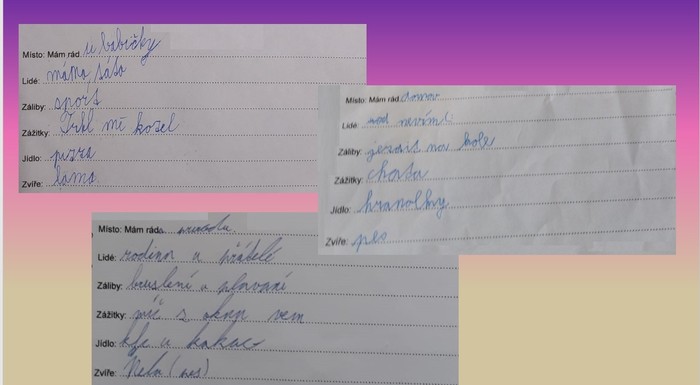 Místo: Mám rád u babičky
Lidé: máma, táta
Záliby: sport
Zážitky: Trkl mě kozel
Jídlo: pizza
Zvíře: lama
Místo: Mám rád domov
Lidé: nevím
Záliby: jezdit na kole
Zážitky: chata
Jídlo: hranolky
Zvíře: pes
Místo: Mám ráda
Lidé: rodina a přátelé
Záliby: bruslení a plavání
Zážitky: s oknn vem
Jídlo: a kakao
Zvíře: Nela (pes)